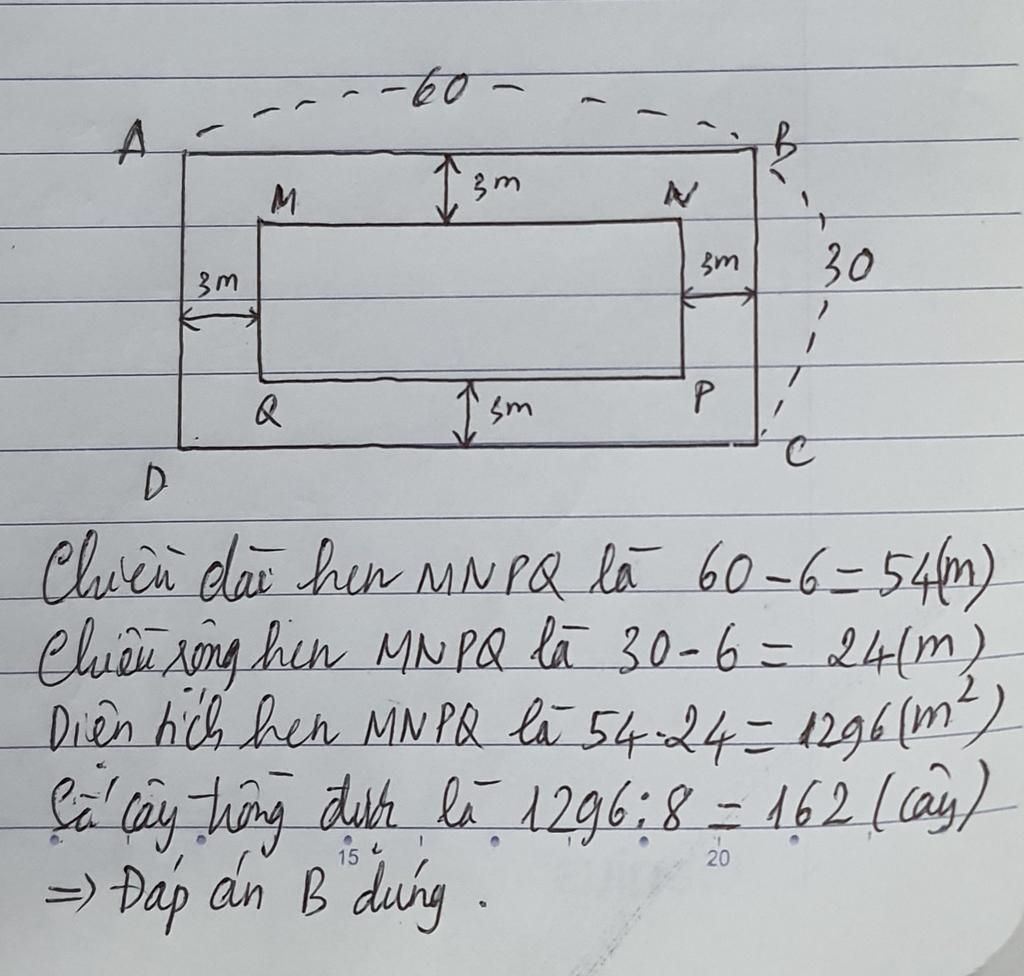 60
A
B
3m
M
N
3m
3m
30
Q
3m
P
D
C
Chiều dài hcn MNPQ là 60 - 6 = 54(m)
Chiều rộng hcn MNPQ là 30 - 6 = 24(m)
Diện tích hcn MNPQ là 54.24 = 1296(m²)
Số cây trồng được là 1296:8 = 162 (cây)
15 20
=> Đáp án B đúng.